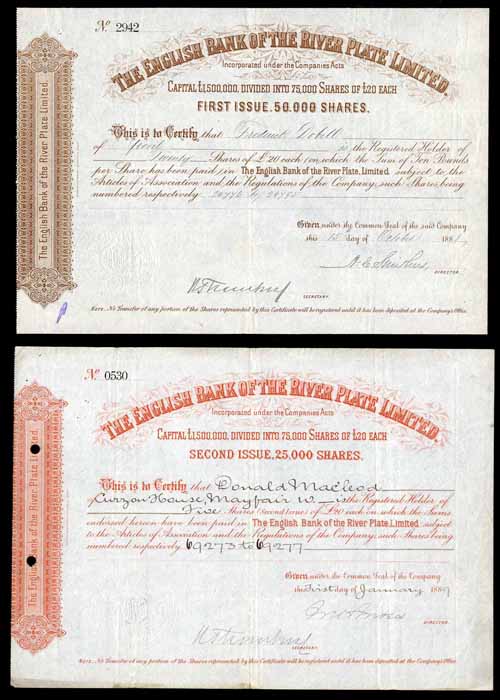 The English Bank of the River Plate Limited.
No. 2942
THE ENGLISH BANK OF THE RIVER PLATE LIMITED.
Incorporated under the Companies Acts
CAPITAL £1,500,000, DIVIDED INTO 75,000 SHARES OF £20 EACH
FIRST ISSUE. 50,000 SHARES.
This is to Certify that Frederick
of is the Registered Holder of
Twenty Shares of £20 each on which the Sum of Ten Pounds
per Share has been paid, in The English Bank of the River Plate, Limited subject to the
Articles of Association and the Regulations of the Company, such Shares being
numbered respectively
Given under the Common Seal of the said Company
this day of October 188
DIRECTOR.
SECRETARY.
NOTE. No Transfer of any portion of the Shares represented by this Certificate will be registered until it has been deposited at the Company's Office.
The English Bank of the River Plate Limited
No. 0530
THE ENGLISH BANK OF THE RIVER PLATE LIMITED.
Incorporated under the Companies Acts
CAPITAL £1,500,000, DIVIDED INTO 75,000 SHARES OF £20 EACH
SECOND ISSUE, 25,000 SHARES.
This is to Certify that Donald Macleod
of Curzon House, Mayfair W. is the Registered Holder of
Five Shares (Second Issue) of £20 each on which the Sums
endorsed hereon have been paid in The English Bank of the River Plate, Limited subject
to the Articles of Association and the Regulations of the Company, such Shares being
numbered respectively 69273 to 69277
Given under the Common Seal of the Company
this first day of January 188
DIRECTOR.
SECRETARY.
NOTE. No Transfer of any portion of the Shares represented by this Certificate will be registered until it has been deposited at the Company's Office.